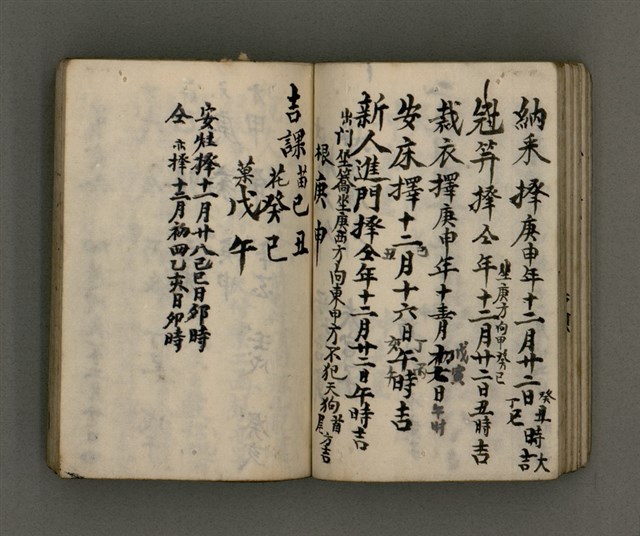 納采擇庚申年十二月廿二日癸丑丁巳時大吉
冠笄擇仝年十二月廿二日丑時吉
坐庚方向甲癸巳
裁衣擇庚申年十壹月初七日午時
戊寅
安床擇十二月十六日午時吉
新人進門擇仝年十二月廿二日午時吉
出门坐轎坐庚西方向東甲方不犯天狗首尾方吉
根庚申
苗己丑
吉課
花癸巳
菓戊午
安灶擇十一月廿八己巳日卯時
仝亦擇十二月初四乙亥日卯時